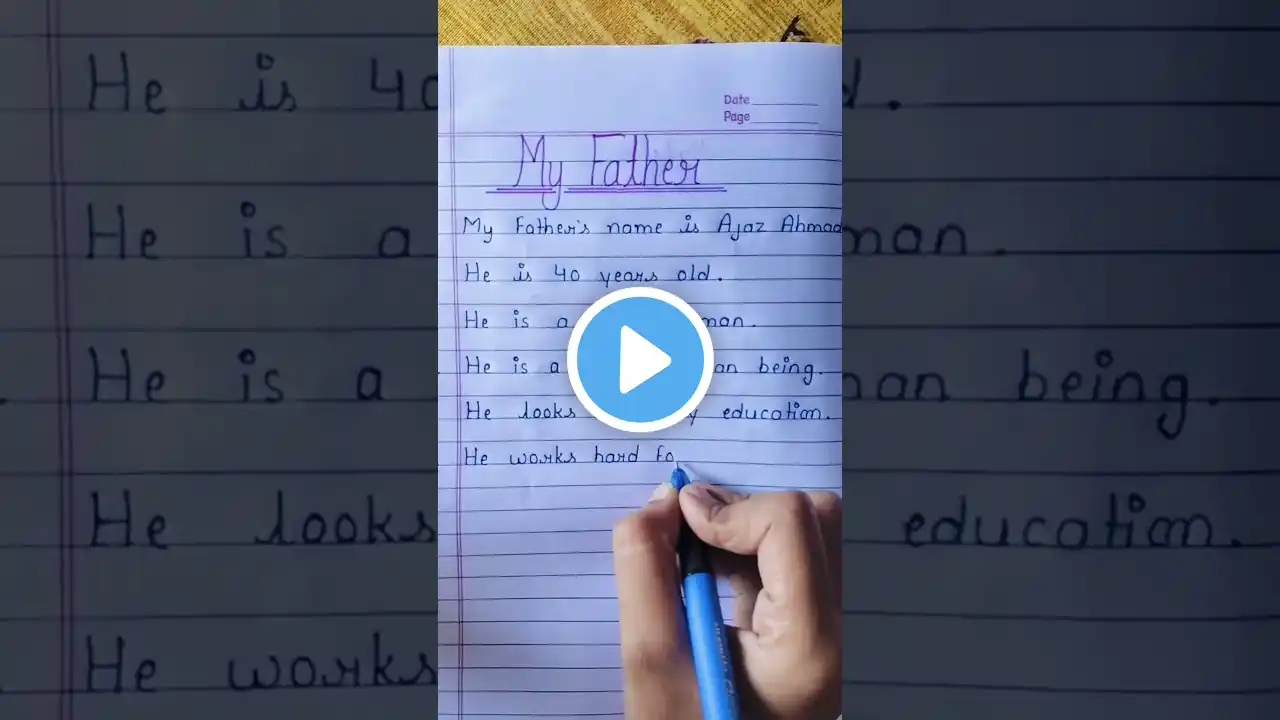 Date
Page
My Father
My Father's name is Ajaz Ahmad
He is 40 years old.
He is a man.
He is a being.
He looks education.
He works hard fo